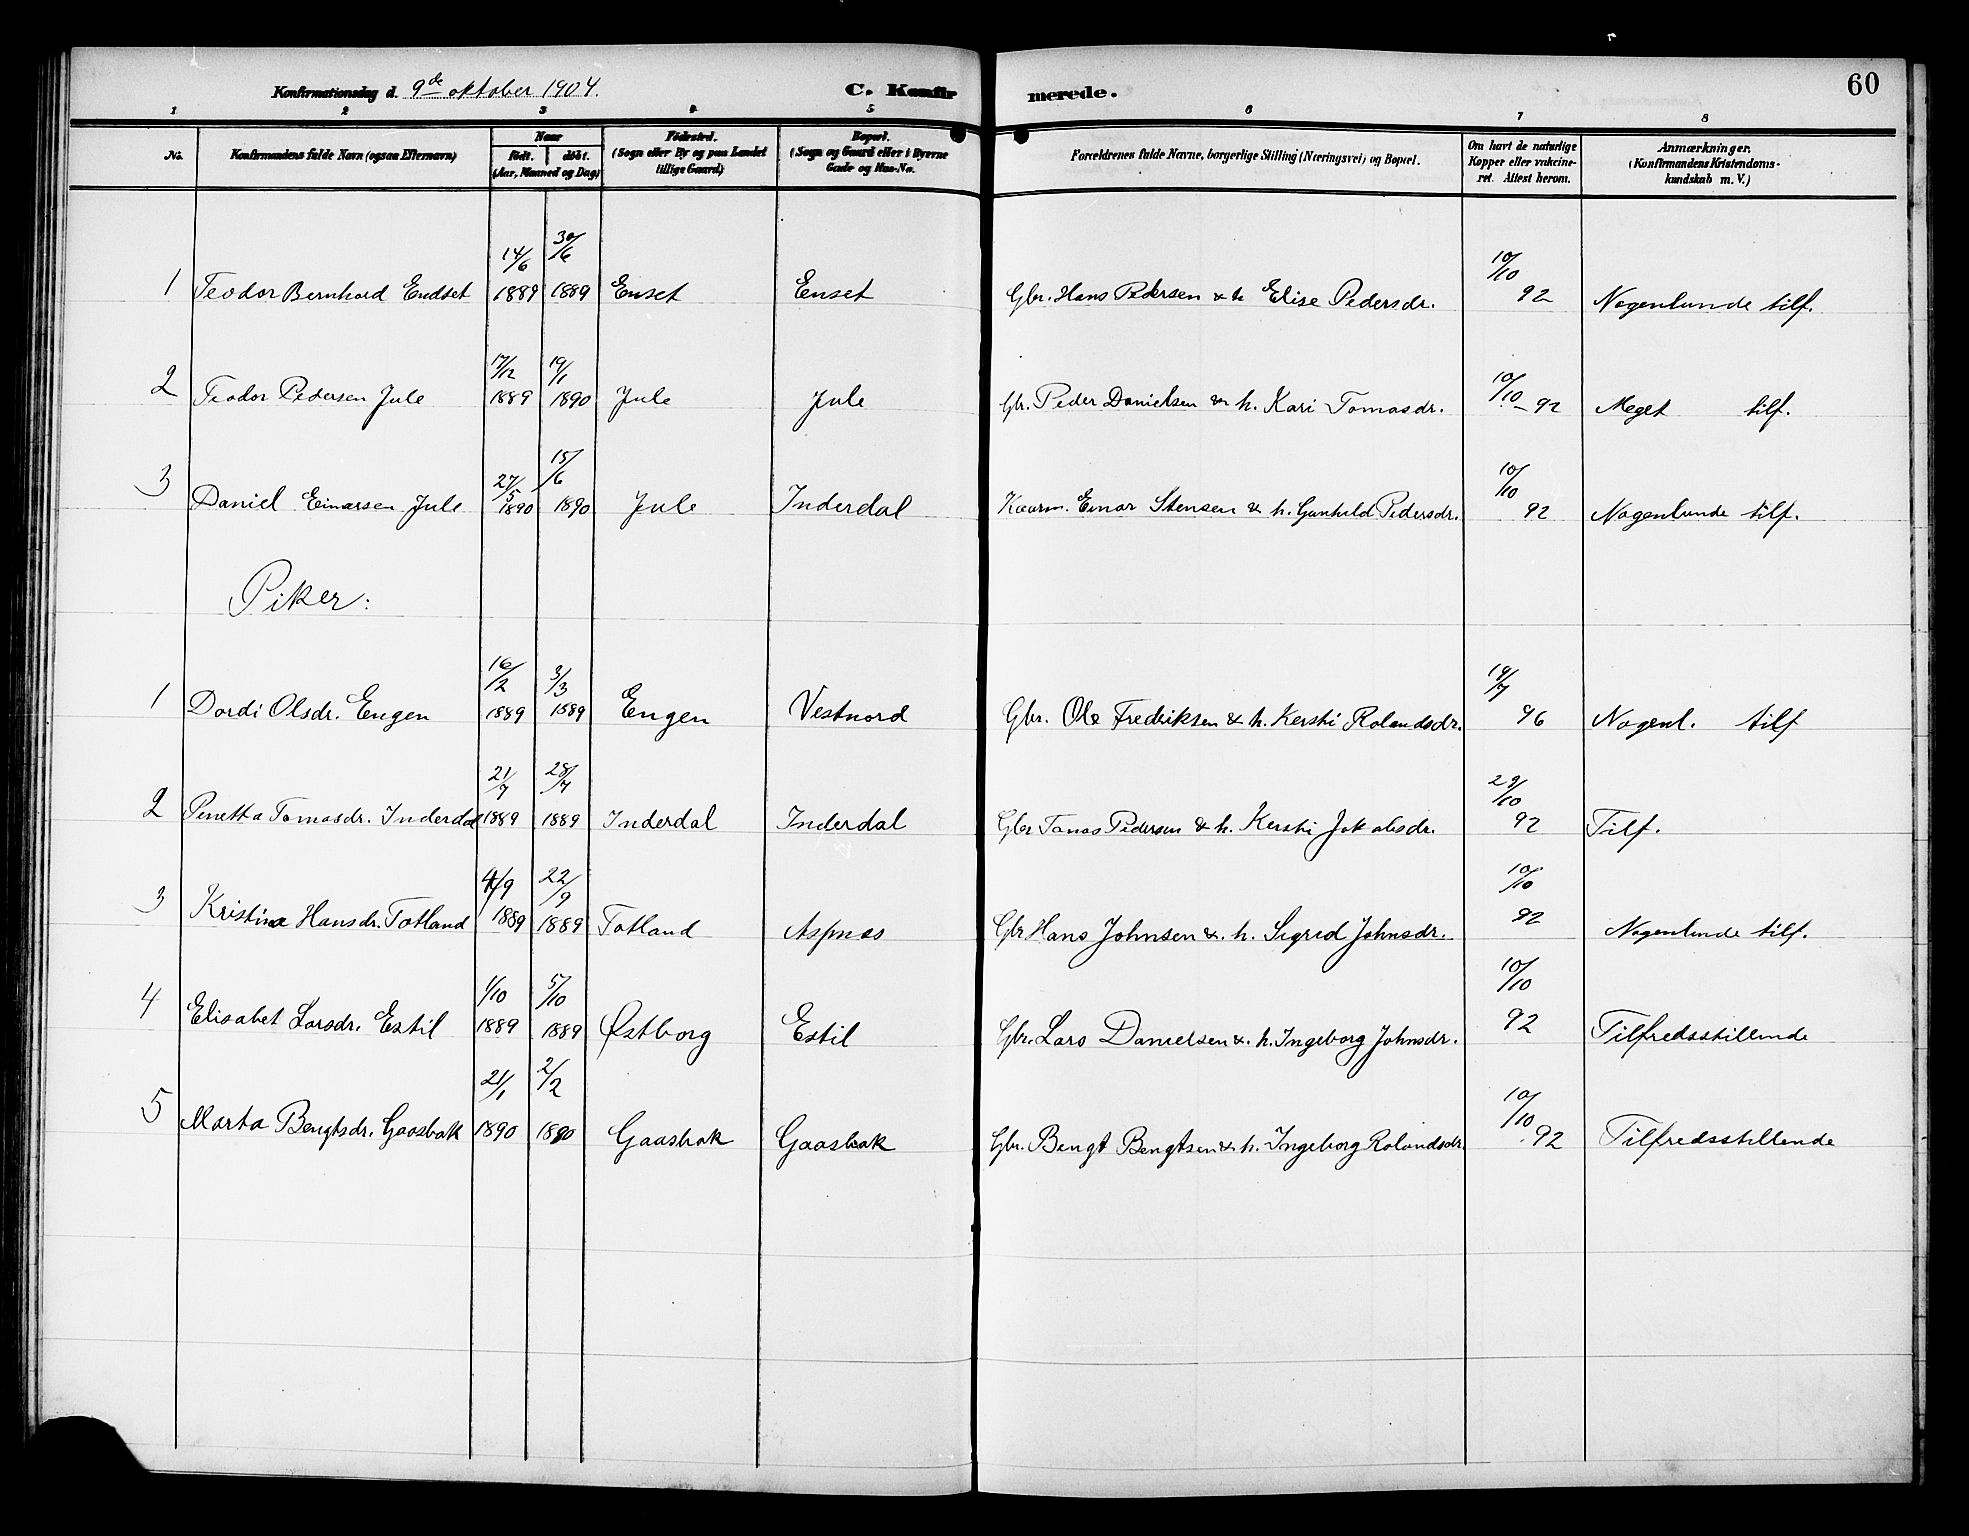 Konfirmationsdag d. 9de oktober 1904. C. Konfirmerede. 60
1 2 3 4 5 6 7 8
No. Konfirmandens fulde Navn (ogsaa Efternavn) Naar født. døbt. (Aar, Maaned og Dag) Fødested. (Sogn eller By og paa Landet tillige Gaard) Bopæl. (Sogn og Gaard eller i Byerne Gade og Hus-No. Forældrenes fulde Navne, borgerlige Stilling (Næringsvei) og Bopæl. Om havt de naturlige Kopper eller vakcineret. Attest herom. Anmærkninger. (Konfirmandens Kristendomskundskab m. V.)
1 Teodor Bernhard Endset 14/6 1889 30/6 1889 Enset Enset Gbr. Hans Pedersen & h Elise Pedersdr. 10/10 92 Nogenlunde tilf.
2 Teodor Pedersen Jule 17/12 1889 19/1 1890 Jule Jule Gbr. Peder Danielsen & h. Kari Tomasdr. 10/10 - 92 Meget tilf.
3 Daniel Einarsen Jule 27/5 1890 15/6 1890 Jule Inderdal Kaarm. Einar Stensen & h. Gunhild Pedersdr. 10/10 92 Nogenlunde tilf.
Piker:
1 Dordi Olsdr. Engen 16/2 1889 3/3 1889 Engen Vestnord Gbr. Ole Fredriksen & h. Kersti Rolandsdr. 19/7 96 Nogenl. tilf
2 Penetta Tomasdr. Inderdal 21/7 1889 28/7 1889 Inderdal Inderdal Gbr Tomas Pedersen & h. Kersti Jakobsdr. 29/10 92 Tilf.
3 Kristina Hansdr. Totland 4/9 1889 22/9 1889 Totland Aspnes Gbr Hans Johnsen &. h. Sigrid Johnsdr. 10/10 92 Nogenlunde tilf.
4 Elisabet Larsdr. Estil 1/10 1889 5/10 1889 Østborg Estil Gbr. Lars Danielsen &. h. Ingeborg Johnsdr. 10/10 92 Tilfredsstillende
5 Marta Bengtsdr. Gaasbak 21/1 1890 2/2 1890 Gaasbak Gaasbak Gbr. Bengt Bengtsen & h. Ingeborg Rolandsdr. 10/10 92 Tilfredsstillende